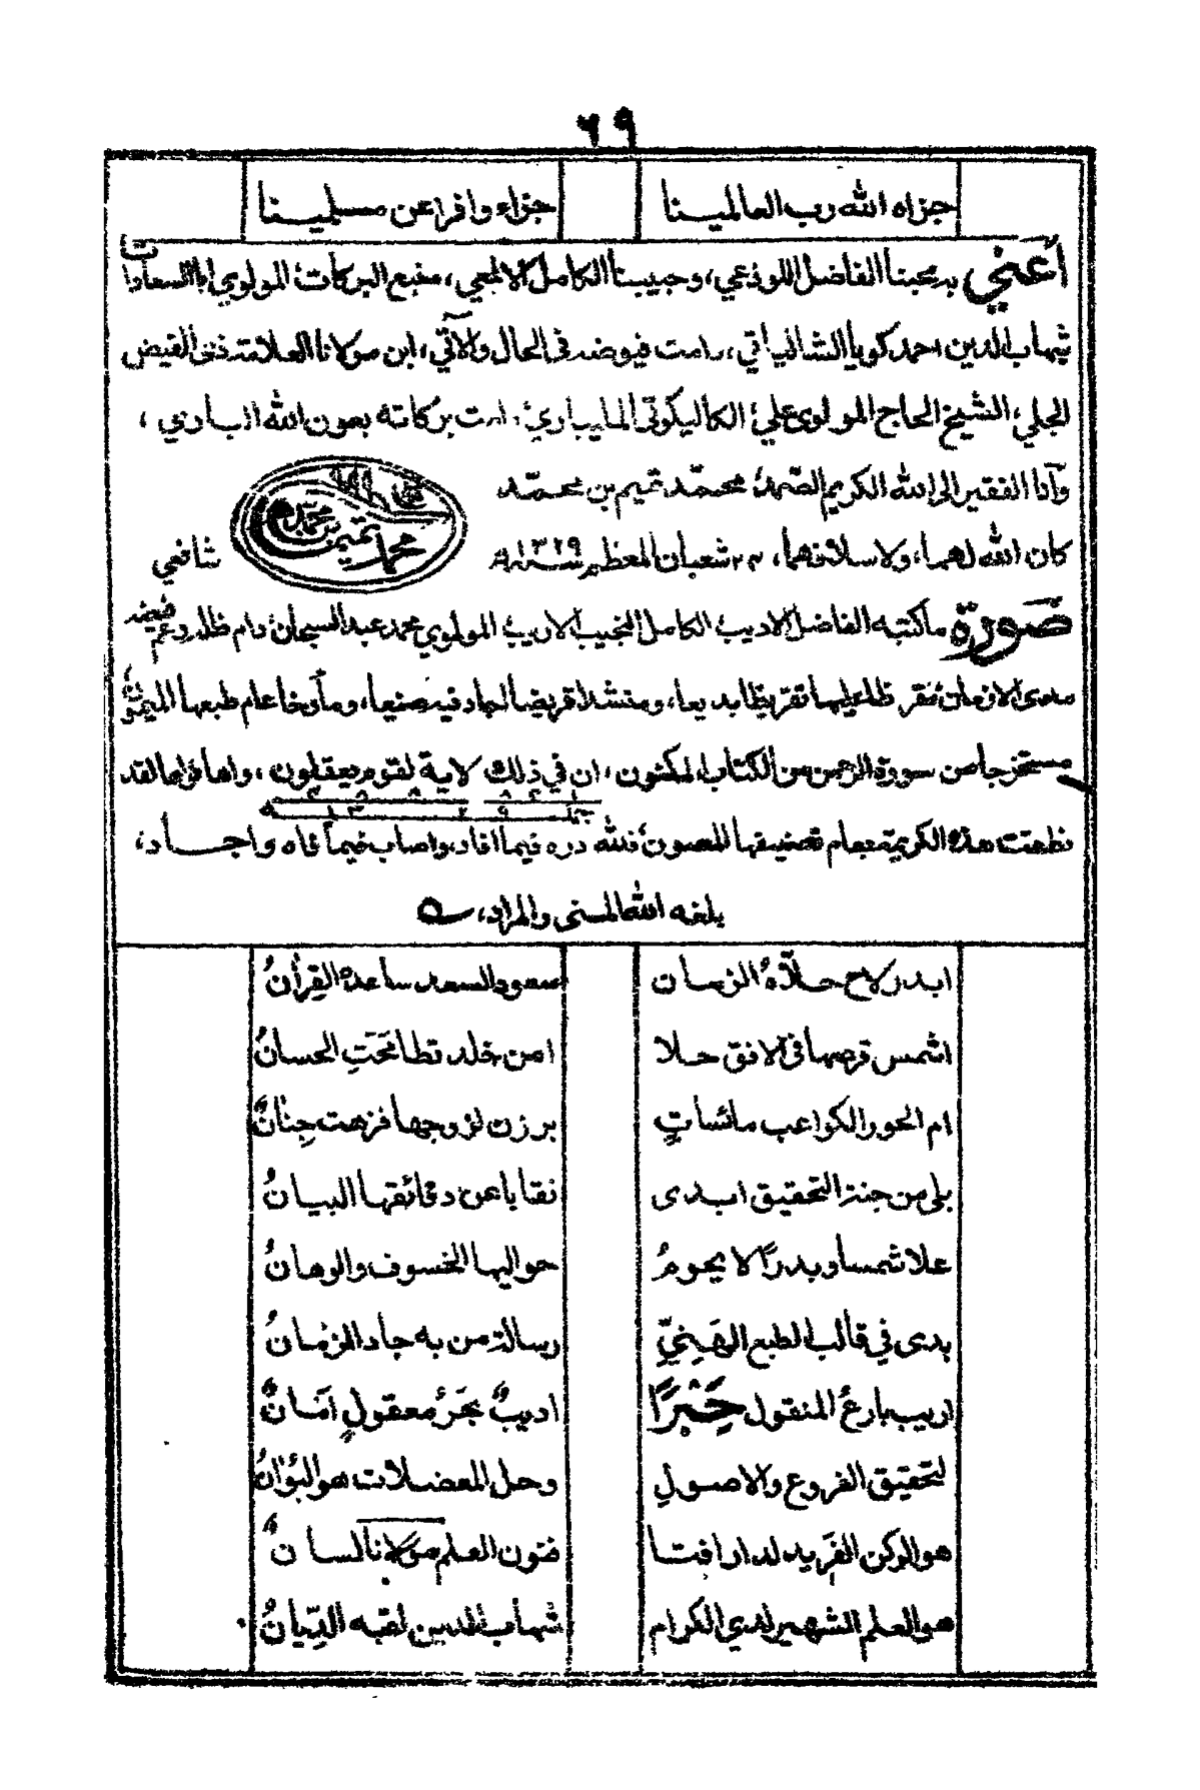 ٦٩
جزاه الله رب العالمينا جزاء وافرا عن مسلمينا
أعني به محبنا الفاضل اللوذعي، وحبيبنا الكامل الالمعي، منبع البركات، المولوي ابا السعادات
شهاب الدين احمد كويا الشالياتي، دامت فيوضه فى الحال والآتي، ابن مولانا العلامة ذى الفيض
الجلي، الشيخ الحاج المولوى علي الكاليكوتي المليباري، دامت بركاته بعون الله الباري،
وأنا الفقير الى الله الكريم الصمد، محمّد تميم بن محمّد
كان الله لهما، ولاسلافهما، شعبان المعظم سنة ١٣٢٩ شافعي
محمد تميم بن محمد
صورة ما كتبه الفاضل الاديب، الكامل النجيب الاريب، المولوي محمد عبد السبحان دام ظله وعم فيضه
مدى الازمان، مقرظا عليها تقريظا بديعا، ومنشدا قريضا اجاد فيه صنيعا، ومأرخا عام طبعها الميمون
مستخرجا من سورة الرحمن من الكتاب المكنون، ان في ذلك لاية لقوم يعقلون، واها فواها لقد
نطقت هذه الكريمة بعام تصنيفها المصون، فلله دره فيما افاد، واصاب فيما فاه واجاد،
بلغه الله المنى والمراد،
ابدر لاح حلاّه الزمان سعود السعد ساعده القرأنُ
اشمس قرصها فى الافق حلا امن خلد تطا نَحَتِ الحسانُ
ام الحور الكواعب مائساتٍ برزن لزوجها فزهت جِنانٌ
بلى من جنة التحقيق ابدى نقابا عن دقائقها البيانُ
علا شمسا وبدرًا لا يحومُ حواليها الخسوف والوهانُ
بدى في قالب الطبع الهَنِيِّ رسالة من به جاد الزمانُ
اريب بارعُ المنقول حَبْرًا اديبٌ بحرُ معقولٍ امَانٌ
لتحقيق الفروع والاصولِ وحل المعضلات هو البُوَانُ
هو الركن الفَريد لدار افتا فنون العلم مولانا لسانٌ
هو العلم الشهير لدي الكرام شهاب الدين لقبه الدِّيانُ